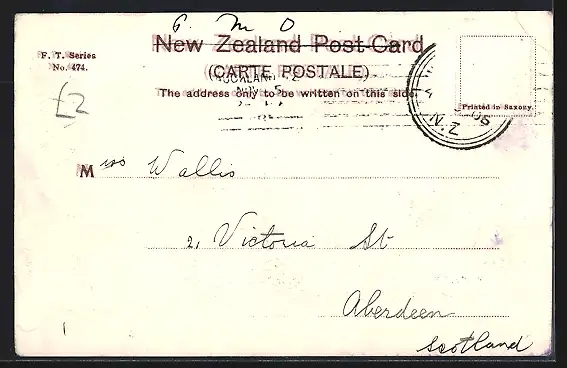 P. M. O
New Zealand Post-Card
F. T. Series
No. 474.
(CARTE POSTALE)
The address only to be written on this side
£2
N.Z.
06
Printed in Saxony.
Miss Wallis
2, Victoria St
Aberdeen
Scotland